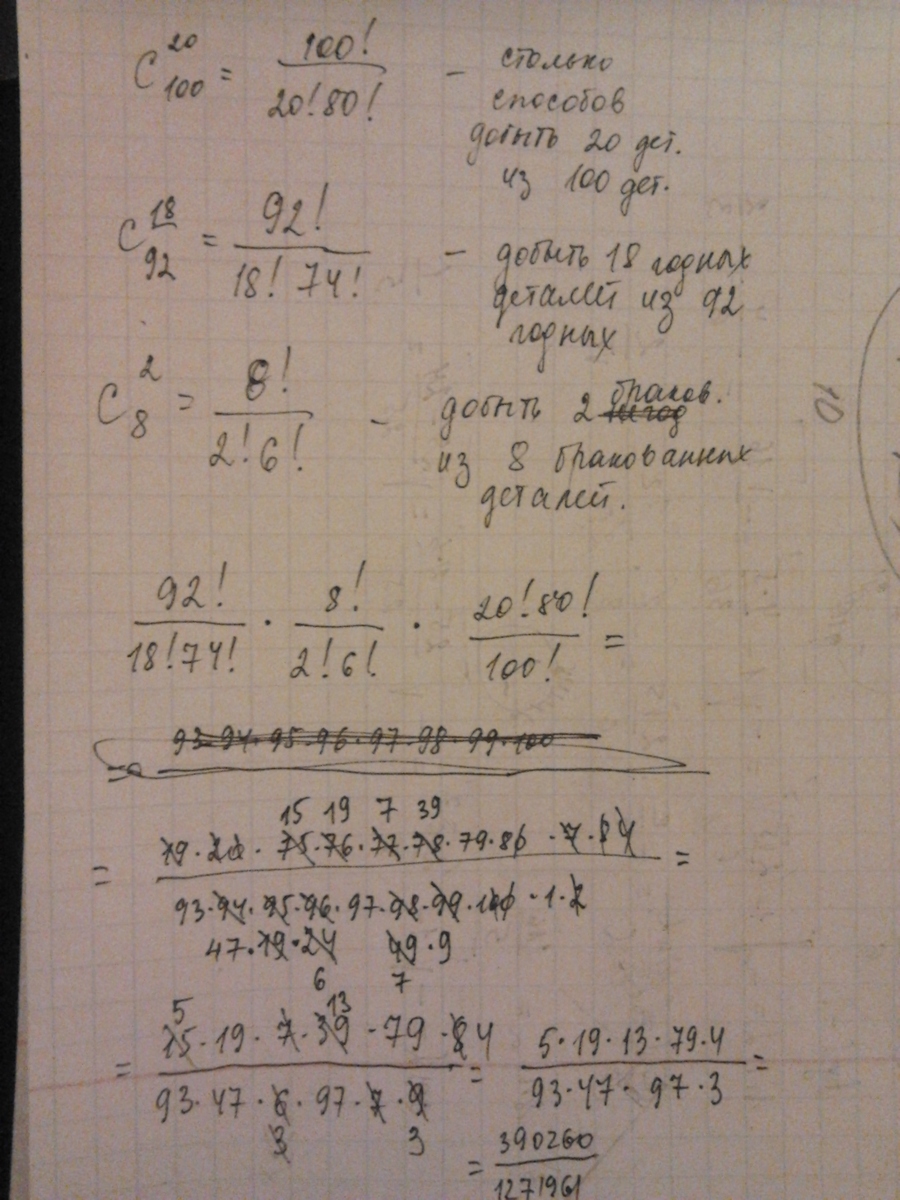 C₁₀₀²⁰ = 100! / 20! 80! - столько
способов
добыть 20 дет.
из 100 дет.
C₉₂¹⁸ = 92! / 18! 74! - добыть 18 годных
деталей из 92
годных
C₈² = 8! / 2! 6! - добыть 2 браков.
из 8 бракованных
деталей.
92! / 18! 74! · 8! / 2! 6! · 20! 80! / 100! =
93·94·95·96·97·98·99·100
=
15 19 7 39
= 19·20·75·76·77·78·79·80·7·8 4 =
93·94·95·96·97·98·99·100·1·2
47·19·24 49·9
6 7
5 13
= 15·19·7·39·79·8 4 / 93·47·6·97·7·9 = 5·19·13·79·4 / 93·47·97·3 =
3 3
= 390260 / 1271961
10